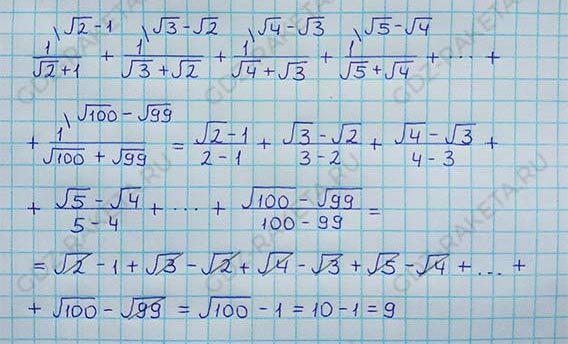 \√2-1 \√3-√2 \√4-√3 \√5-√4
1/(√2+1) + 1/(√3+√2) + 1/(√4+√3) + 1/(√5+√4) + ... +
\√100-√99
+ 1/(√100+√99) = (√2-1)/(2-1) + (√3-√2)/(3-2) + (√4-√3)/(4-3) +
+ (√5-√4)/(5-4) + ... + (√100-√99)/(100-99) =
= √2 - 1 + √3 - √2 + √4 - √3 + √5 - √4 + ... +
+ √100 - √99 = √100 - 1 = 10 - 1 = 9
GDZ-RAKETA.RU